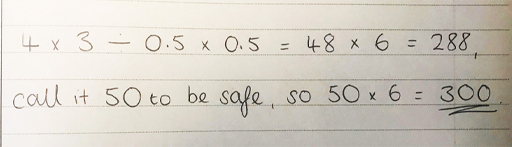 4 x 3 ÷ 0.5 x 0.5 = 48 x 6 = 288,
call it 50 to be safe, so 50 x 6 = 300